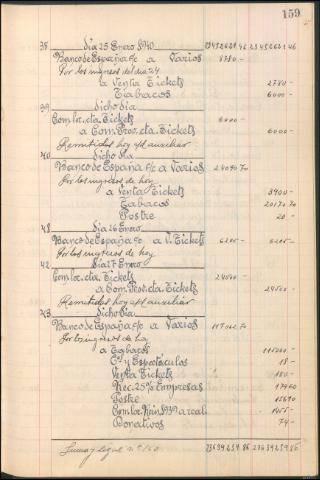 159
38 Dia 25 Enero 1940 23452621 46 23452621 46
Banco de España c/c a Varios 8780 -
Por los ingresos del dia 24
a Venta Tickets 2780 -
Tabacos 6000 -
39 dicho dia
Com. loc. cta. Tickets 6000 -
a Com. Prov. cta. Tickets 6000 -
Remitidos hoy s/ auxiliar
40 dicho dia
Banco de España c/c a Varios 24090 70
Por los ingresos de hoy
a Venta Tickets 3900 -
Tabacos 20170 70
Postre 20 -
41 dia 26 Enero
Banco de España c/c a V. Tickets 6205 - 6205 -
Por los ingresos de hoy
42 dia 27 Enero
Com. loc. cta. Tickets
a Com. Prov. cta. Tickets
Remitidos hoy s/ auxiliar
43 dicho dia
Banco de España c/c a Varios
Por los ingresos de hoy
a Tabacos
C. y Espectáculos 18 -
Venta Tickets 180 -
Rec. 25% Empresas
Postre
Donativos 74 -
Suma y sigue nº 160 23639259 86 23639259 86